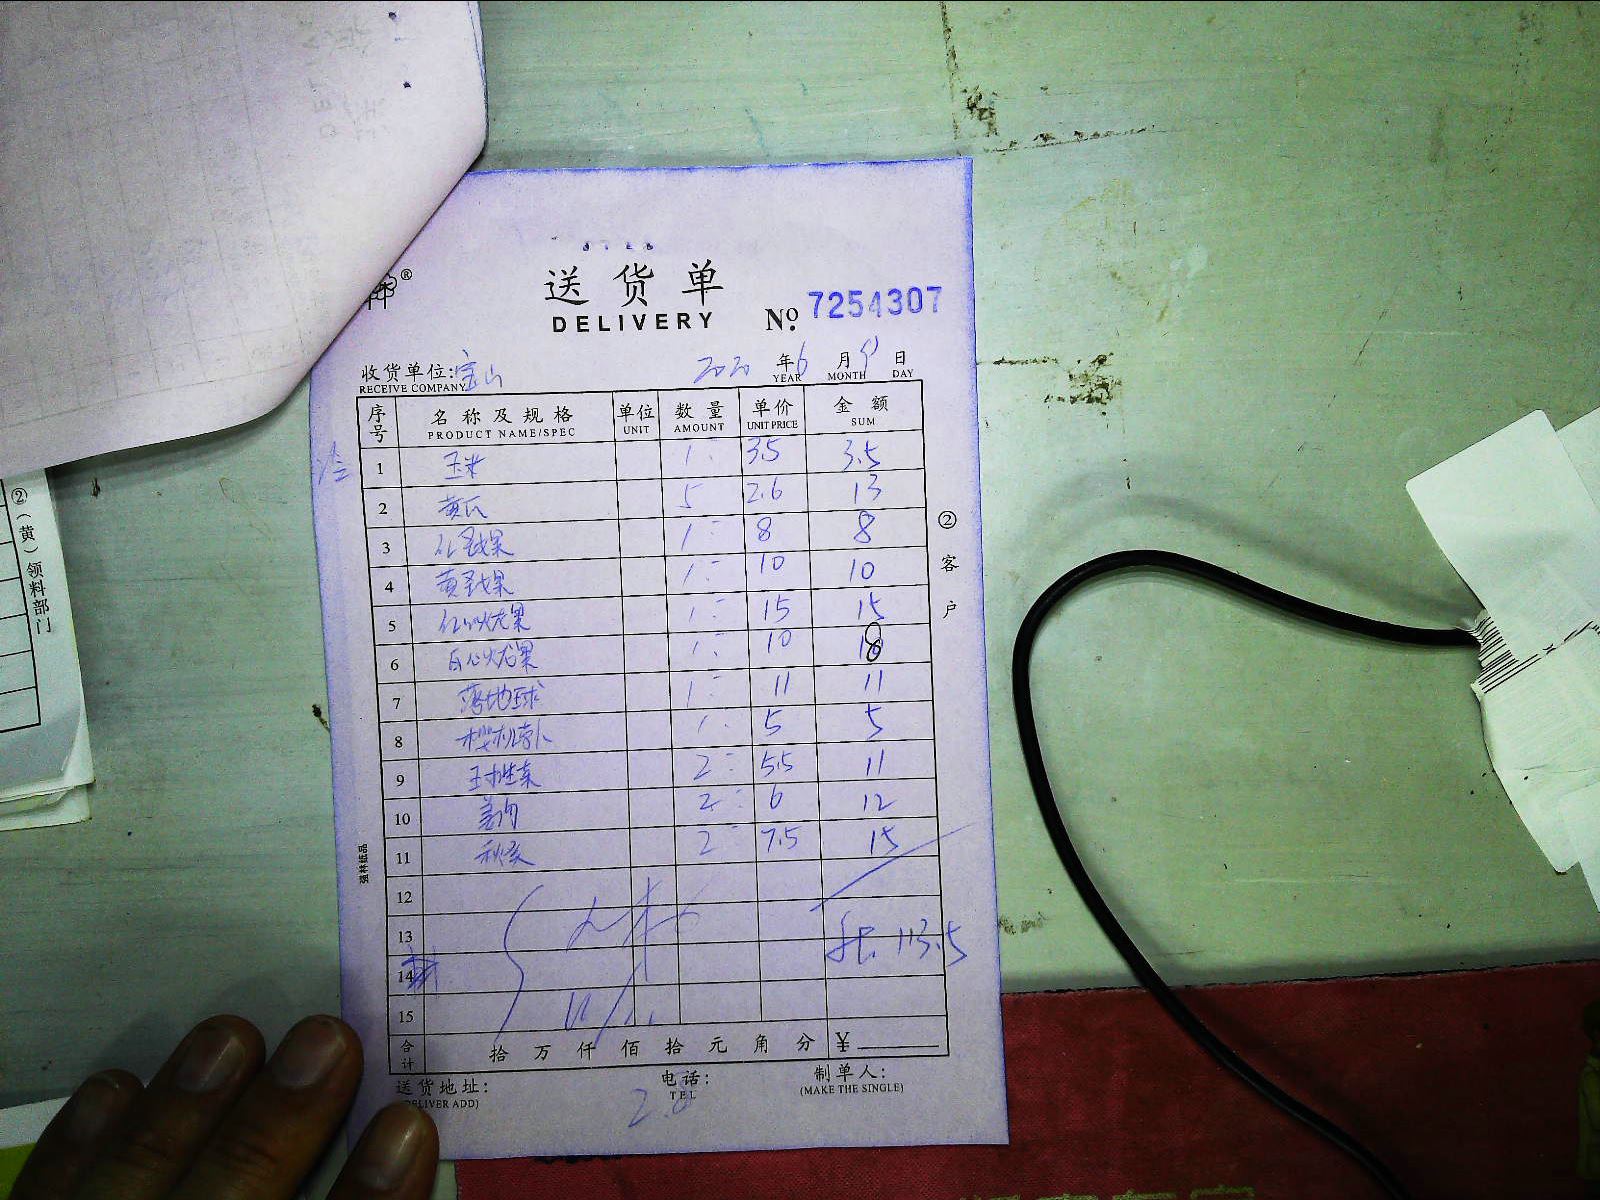 送货单
DELIVERY
No. 7254307
收货单位: 宝山 2020 年 6 月 9 日
RECEIVE COMPANY YEAR MONTH DAY
序号 名称及规格 单位 数量 单价 金额
PRODUCT NAME/SPEC UNIT AMOUNT UNIT PRICE SUM
1 玉米 1 3.5 3.5
2 黄瓜 5 2.6 13
3 红圣女果 1 8 8
4 黄圣女果 1 10 10
5 红心火龙果 1 15 15
6 白心火龙果 1 10
7 落地球 1 11 11
8 樱桃萝卜 1 5 5
9 2 5.5 11
10 2 6 12
11 秋葵 2 7.5 15
12
13
113.5
14
15
合计 拾 万 仟 佰 拾 元 角 分 ¥
送货地址: 电话: 制单人:
(DELIVER ADD) TEL (MAKE THE SINGLE)
②客户
强林纸品
②(黄)领料部门